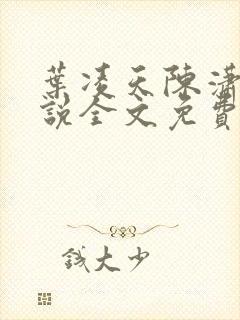 葉凌天陳瀟
說全文免費
錢大少